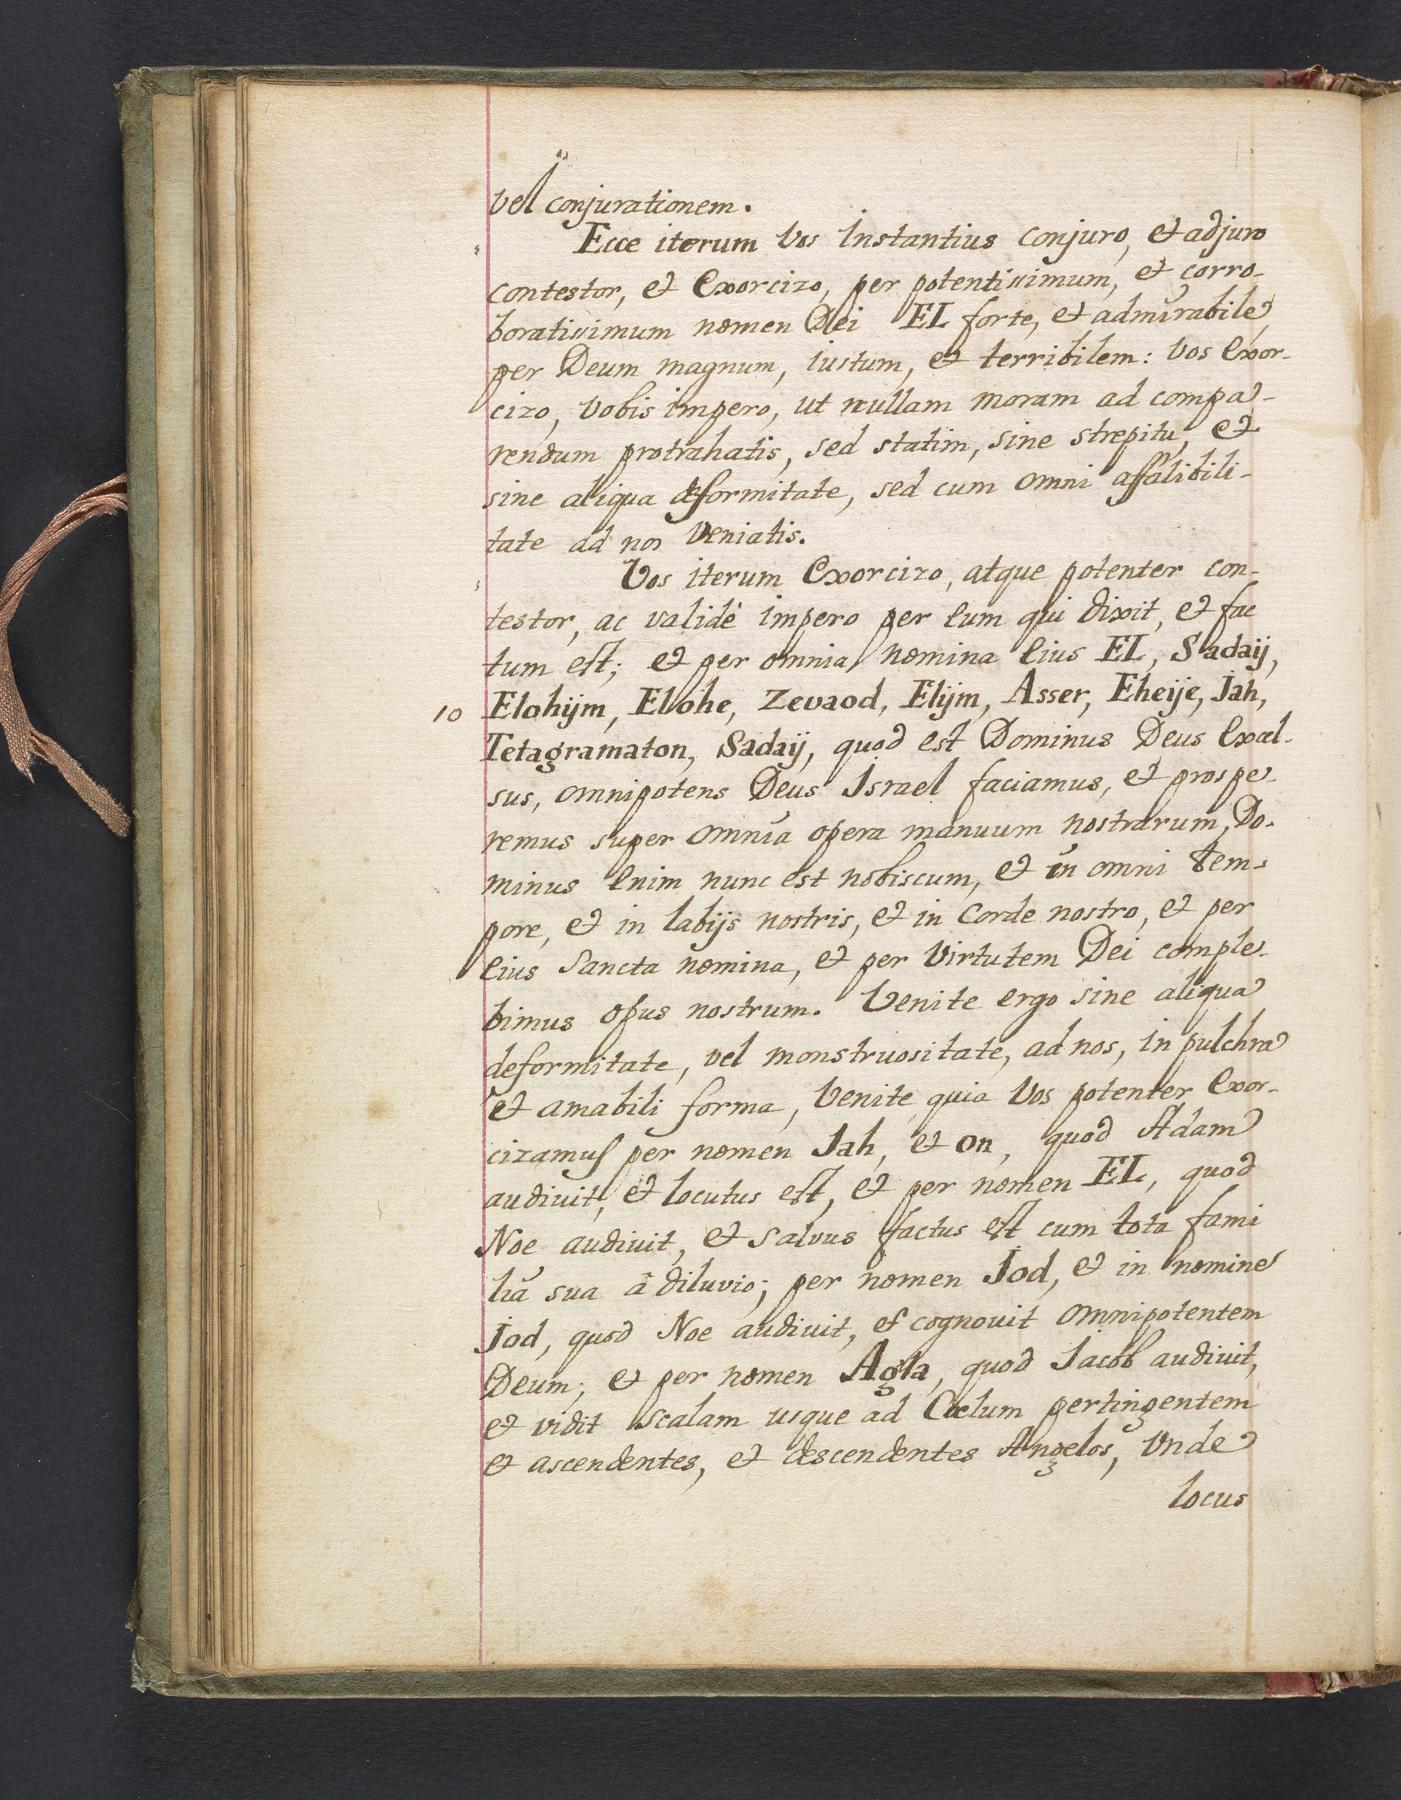 vel conjurationem.
Ecce iterum Vos Instantius Conjuro, et adjuro
contestor, et Exorcizo, per potentissimum, et corro-
boratissimum nomen Dei EL forte, et admirabile,
per Deum magnum, iustum, et terribilem: Vos Exor-
cizo, Vobis impero, ut nullam moram ad compa-
rendum protrahatis, sed statim, sine strepitu, et
sine aliqua deformitate, sed cum omni affalibili-
tate ad nos Veniatis.
Vos iterum Exorcizo, atque potenter con-
testor, ac validè impero per Eum qui dixit, et fac
tum est; et per omnia nomina Eius EL, Sadaij,
10 Elohijm, Elohe, Zevaod, Elijm, Asser, Eheije, Jah,
Tetagramaton, Sadaij, quod est Dominus Deus Excel-
sus, omnipotens Deus Israel faciamus, et prospe-
remus super omnia opera manuum nostrarum, Do-
minus Enim nunc est nobiscum, et in omni Tem-
pore, et in labijs nostris, et in Corde nostro, et per
Eius Sancta nomina, et per Virtutem Dei comple-
bimus opus nostrum. Venite ergo sine aliqua
deformitate, vel monstruositate, ad nos, in pulchra
et amabili forma, Venite, quia Vos potenter Exor-
cizamus per nomen Jah, et on, quod Adam
audivit, et locutus est, et per nomen EL, quod
Noe audivit, et Salvus factus est cum tota fami
lia sua â diluvio; per nomen Jod, et in nomine
Jod, quod Noe audivit, et cognovit omnipotentem
Deum; et per nomen Agla, quod Jacob audivit,
et vidit scalam usque ad Cœlum pertingentem
et ascendentes, et descendentes Angelos, Vnde
locus